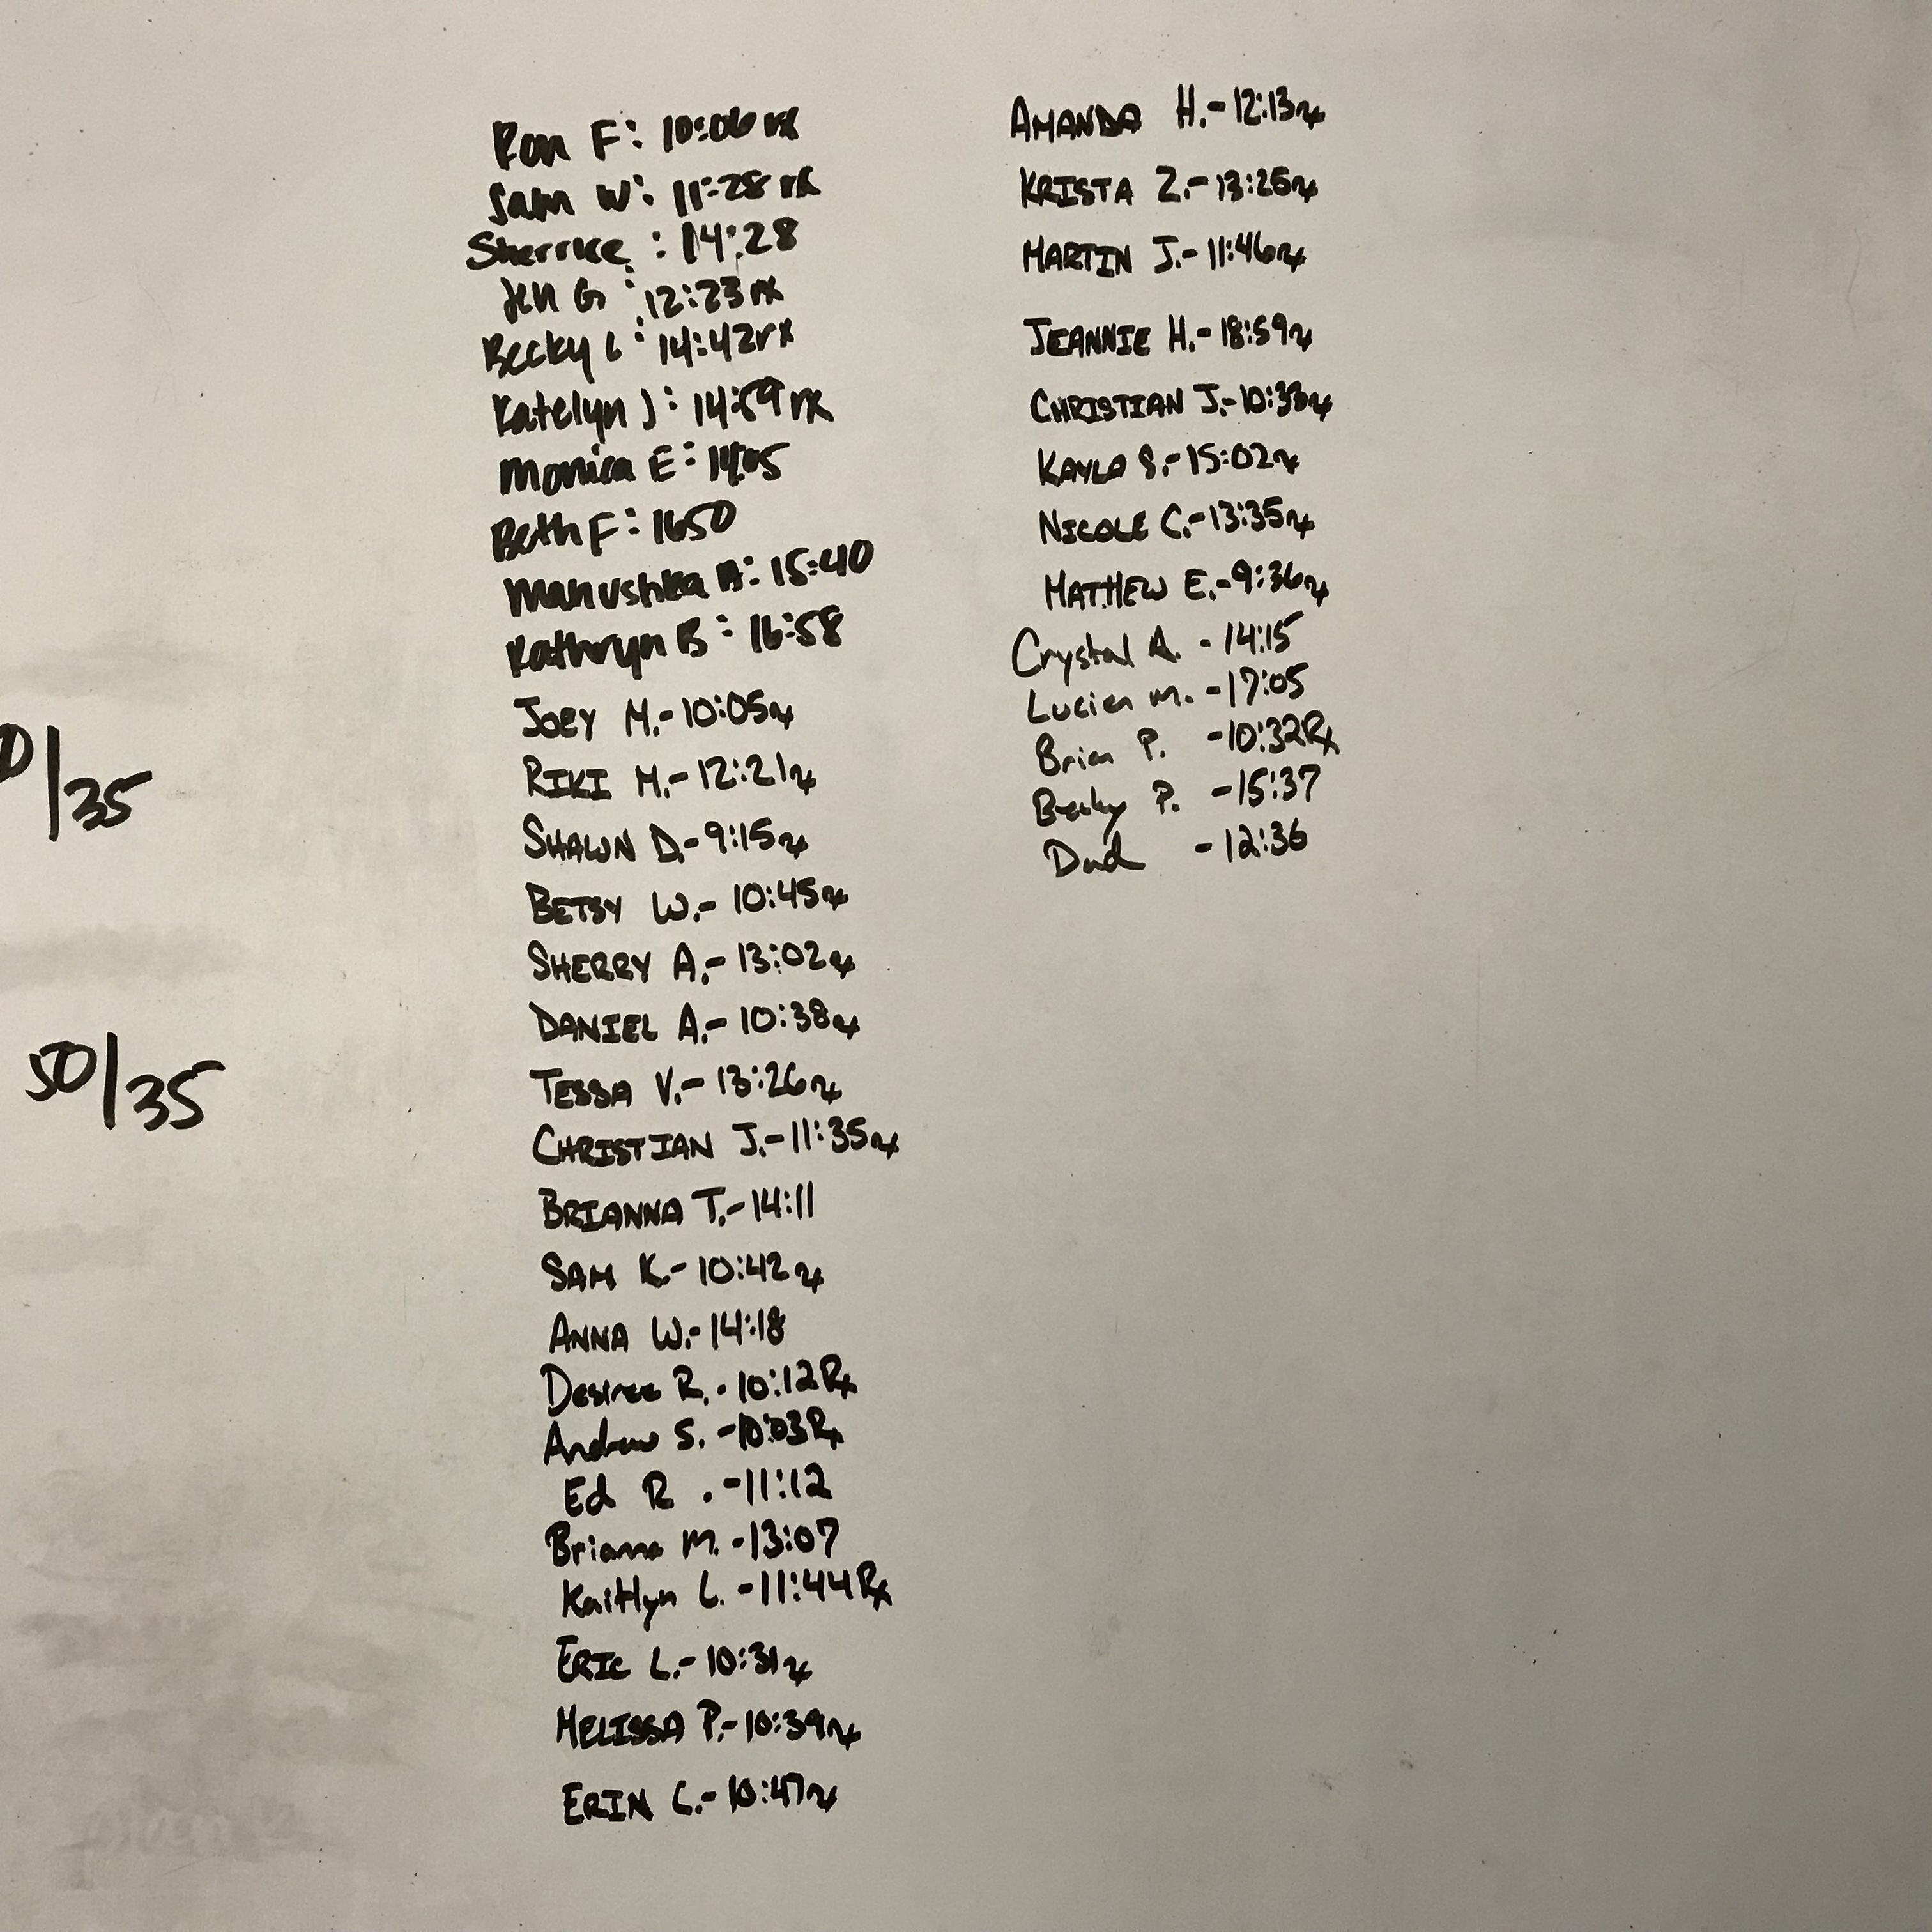 Ron F: 10:06 rx
Sam W: 11:28 rx
Sherrice : 14:28
Jen G : 12:23 rx
Becky L : 14:42rx
Katelyn J : 14:59 rx
Monica E : 14:05
Beth F : 1650
Manushka A: 15:40
Kathryn B : 16:58
JOEY M.- 10:05rx
RIKI M.- 12:21rx
SHAWN D.- 9:15rx
BETSY W.- 10:45rx
SHERRY A.- 13:02rx
DANIEL A.- 10:38rx
TESSA V.- 13:26rx
CHRISTIAN J.- 11:35rx
BRIANNA T.- 14:11
SAM K.- 10:42rx
ANNA W.- 14:18
Desiree R. - 10:12Rx
Andrew S. - 10:03Rx
Ed R . - 11:12
Brianna M. - 13:07
Kaitlyn L. - 11:44Rx
ERIC L.- 10:31rx
MELISSA P.- 10:39rx
ERIN C.- 10:47rx
AMANDA H.- 12:13rx
KRISTA Z.- 13:25rx
MARTIN J.- 11:46rx
JEANNIE H.- 18:59rx
CHRISTIAN J.- 10:33rx
KAYLA S.- 15:02rx
NICOLE C.- 13:35rx
MATTHEW E.- 9:36rx
Crystal A. - 14:15
Lucien M. - 17:05
Brian P. - 10:32Rx
Becky P. - 15:37
Dad - 12:36
0/35
50/35